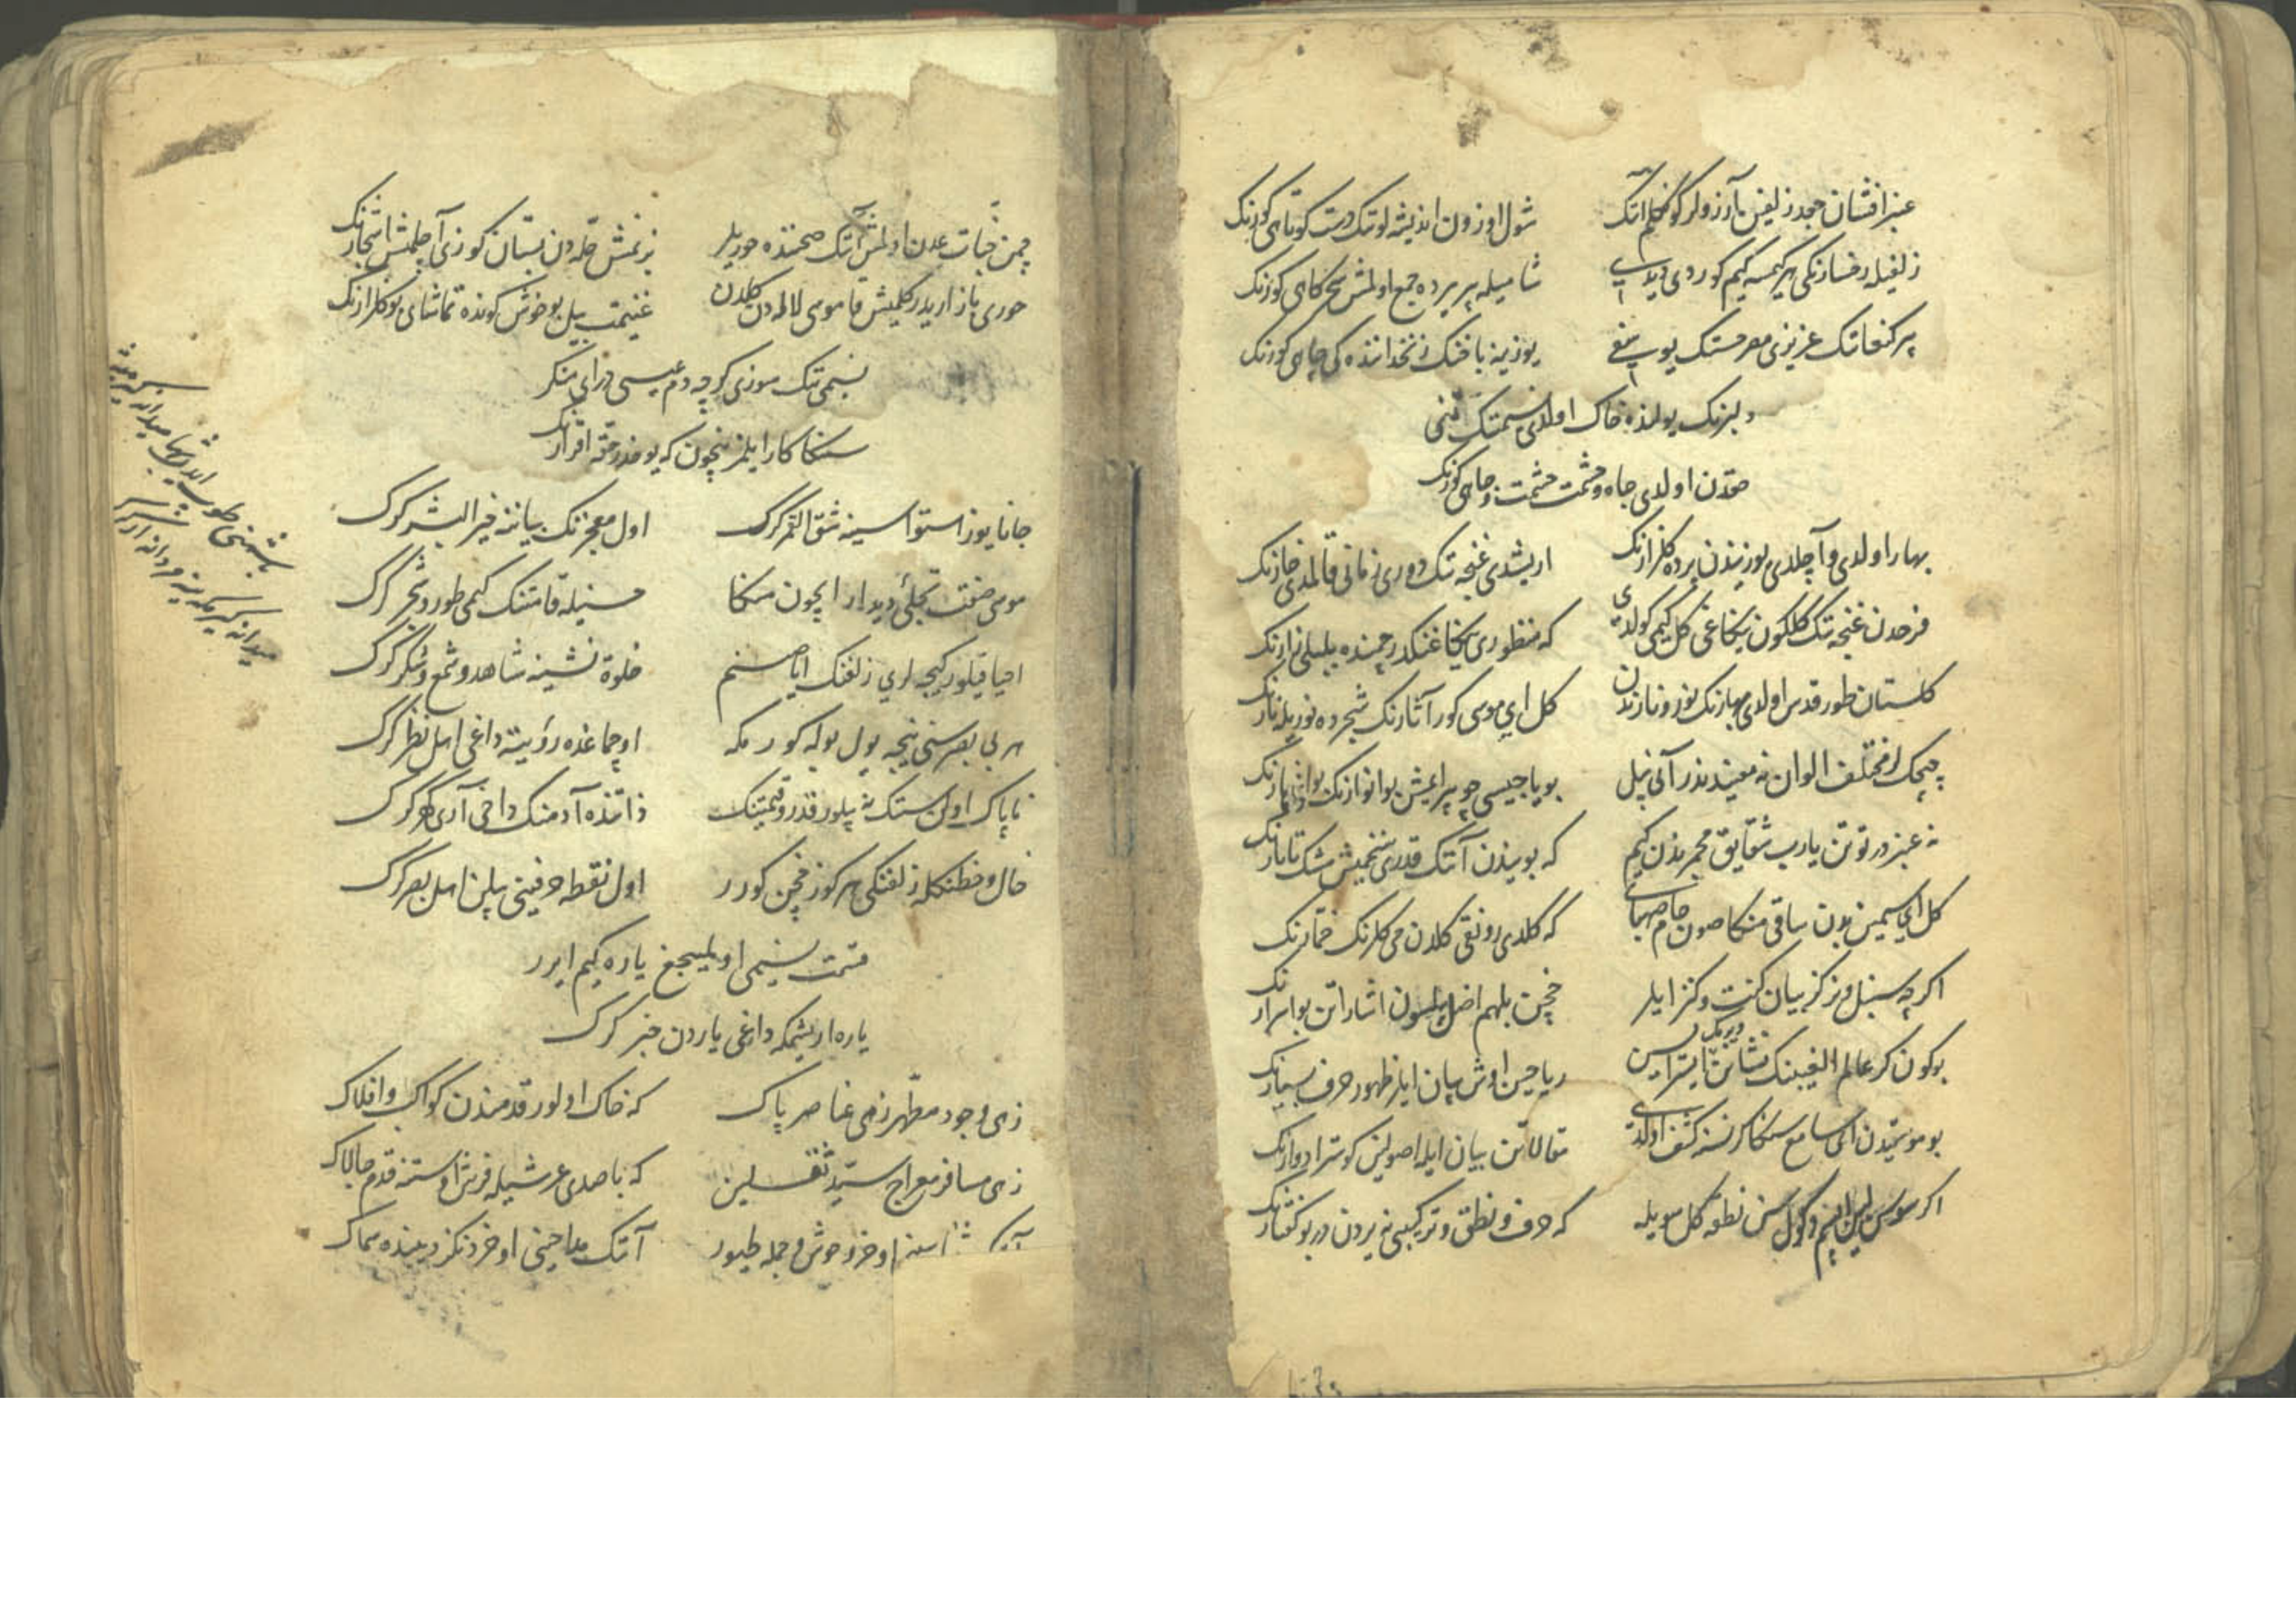 عنبرافشان جعد زلفین آرزولر کوکلم آنک شول اوزون اندیشه لو تک دست کوتاهی کورنک
زلفیله رخسارنکی هر کیمسه کیم کوردی دیدی شامیله بر یرده جمع اولمش سحرکاهی کورنک
پر کنعانک عزیزی مصر حسنک یوسفی یوزینه باقنک زنخدانده کی چاهی کورنک
دلبرنک یولنده خاک اولدی نسیمینک تنی
حقدن اولدی جاه و حشمت حشمت و جاهی کورنک
بهار اولدی و آچلدی یوزیندن پرده کلزارنک اریشدی غنچه تک دوری زمانی قالمدی خارنک
فرحدن غنچه تک کلکون یکاغی کل کیمی کولدی که منظوری یکاغنکدر چمنده بلبل زارنک
کلستان طور قدس اولدی بهارنک نور و نارندن کل ای موسی کور آثارنک شجرده نوریله نارنک
چیچکلر مختلف الوان نه معنیدندر آنی بیل بویاجیسی چو بر ایمش بو انوارنک بو ازهارنک
نه عنبردر توتن یارب شقایق مجمریندن کیم که بویندن آنک قدری سنمیش مشک تاتارنک
کل ای سیمین بدن ساقی منکا صون جام صهبای که کلدی رونقی کلدن می کلرنک خمارنک
اکرچه سنبل و نرکز بیان کنت و کنز ایلر خچن بلهم اضل بلسون اشاراتن بو اسرارنک
بوکون کر عالم الغیبنک نشانن ایسترایسن ریاحین اوش بیان ایلر ظهور حرف بسیارنک
بو موسیقیدن ای سامع سنکا کر نسنه کشف اولدی مقالاتن بیان ایله اصولین کوستر ادوارنک
اکر سوسن لسانیم دکول سن نطقه کل سویله که حرف و نطق و ترکیبی نیردن در بو کفتارنک
چمن جنات عدن اولمش آنک صحننده حوریلر بزنمش حله دن بستان کوزی آچلمش اشجارنک
حوری بازاریدر کلمیش قاموسی لاله دن کلدن غنیمت بیل بو خوش کونده تماشای بو کلزارنک
نسیمی تنک سوزی کرچه دم عیسی درای منکر
سنکا کار ایلمز نیچون که یوخدر حقه اقرارنک
جانا یوز استواسینه شق القمر کرک اول معجزنک بیاننه خیرالبشر کرک
موسی صفت تجلئ دیدار ایچون منکا حسنیله قامتنک کیمی طور و شجر کرک
احیا قیلور کیجه لری زلفنک ایا صنم خلوة نشینه شاهد و شمع و شکر کرک
هر بی بصر سنی نیجه یول بوله کورمکه اوچماغده رؤیته داغی اهل نظر کرک
ناپاک اولن سنک نه بیلور قدر و قیمتنک ذاتنده آدمنک داخی آری کهر کرک
خال و خطنکله زلفنکی هر کوز خچن کورر اول نقطه حرفینی بیلن اهل بصر کرک
قسمت نسیمی اویلمیجغ یاره کیم ایرر
یاره اریشمکه داغی یاردن خبر کرک
زهی وجود مطهر زهی عناصر پاک که خاک اولور قدمندن کواکب و افلاک
زهی مسافر معراج سید ثقلین که باصدی عرشیله فرش اوستنه قدم چالاک
اوخر وحوش و جمله طیور آنک مداحینی اوخر دنکز دیبنده سماک